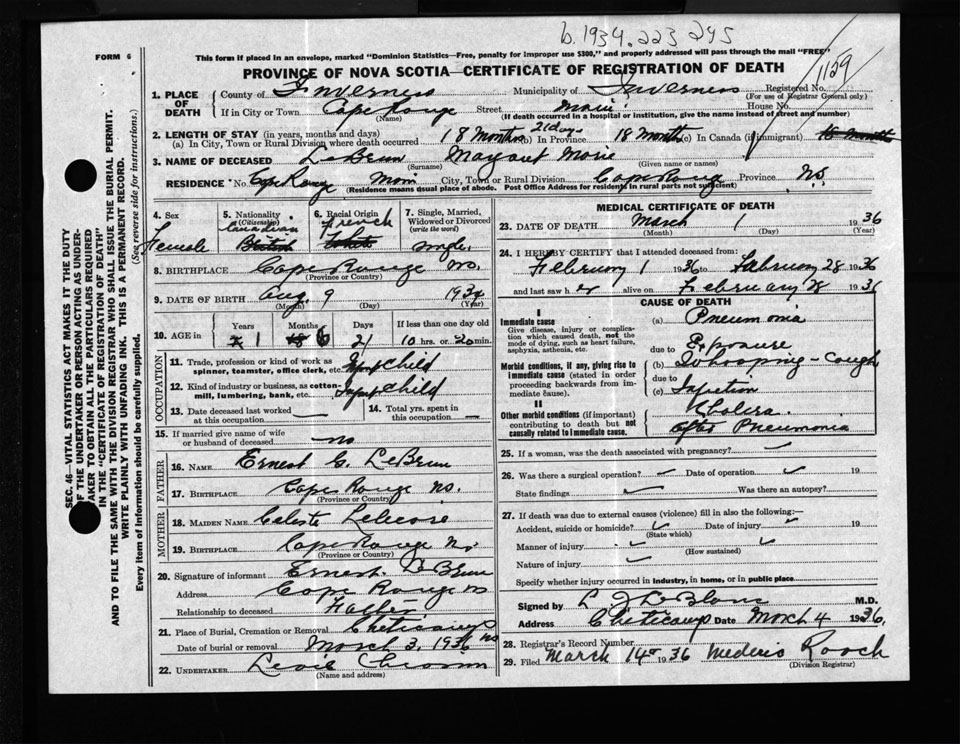 b. 1934. 223 245
FORM 6
This form if placed in an envelope, marked "Dominion Statistics—Free, penalty for improper use $300," and properly addressed will pass through the mail "FREE"
PROVINCE OF NOVA SCOTIA—CERTIFICATE OF REGISTRATION OF DEATH
1129
1. PLACE OF DEATH County of Inverness Municipality of Inverness Registered No.
(For use of Registrar General only)
If in City or Town Cape Rouge Street Main House No.
(Name) (If death occurred in a hospital or institution, give the name instead of street and number)
2. LENGTH OF STAY (in years, months and days)
(a) In City, Town or Rural Division where death occurred 18 Months 21 days (b) In Province 18 Month (c) In Canada (if immigrant)
3. NAME OF DECEASED LeBrun Margaret Marie
(Surname) (Given name or names)
RESIDENCE No. Cape Rouge Main City, Town or Rural Division Cape Rouge Province N.S.
(Residence means usual place of abode. Post Office Address for residents in rural parts not sufficient)
4. Sex Female
5. Nationality (Citizenship) Canadian British
6. Racial Origin French White
7. Single, Married, Widowed or Divorced (write the word) single
8. BIRTHPLACE Cape Rouge NS.
(Province or Country)
9. DATE OF BIRTH Aug. 9 1934
(Month) (Day) (Year)
10. AGE in Years Months Days If less than one day old
1 18 6 21 10 hrs. or 20 min.
OCCUPATION
11. Trade, profession or kind of work as spinner, teamster, office clerk, etc. child
12. Kind of industry or business, as cotton-mill, lumbering, bank, etc. child
13. Date deceased last worked at this occupation —
14. Total yrs. spent in this occupation —
15. If married give name of wife or husband of deceased —no
FATHER
16. NAME Ernest G. LeBrun
17. BIRTHPLACE Cape Rouge NS.
(Province or Country)
MOTHER
18. MAIDEN NAME Celeste
19. BIRTHPLACE Cape Rouge NS
(Province or Country)
20. Signature of informant Ernest LeBrun
Address Cape Rouge NS
Relationship to deceased Father
21. Place of Burial, Cremation or Removal Cheticamp NS
Date of burial or removal March 3, 1936
22. UNDERTAKER
(Name and address)
MEDICAL CERTIFICATE OF DEATH
23. DATE OF DEATH March 1 1936
(Month) (Day) (Year)
24. I HEREBY CERTIFY that I attended deceased from:
February 1 1936 to February 28 1936
and last saw her alive on February 28 1936
CAUSE OF DEATH
I
Immediate cause
Give disease, injury or complication which caused death, not the mode of dying, such as heart failure, asphyxia, asthenia, etc.
(a) Pneumonia
due to Exposure
Morbid conditions, if any, giving rise to immediate cause (stated in order proceeding backwards from immediate cause).
(b) Whooping-Cough
due to
(c) Infection
II
Other morbid conditions (if important) contributing to death but not causally related to immediate cause.
Cholera
after Pneumonia
25. If a woman, was the death associated with pregnancy? ✓
26. Was there a surgical operation? ✓ Date of operation ✓ 19
State findings ✓ Was there an autopsy?
27. If death was due to external causes (violence) fill in also the following:—
Accident, suicide or homicide? ✓ Date of injury ✓ 19
(State which)
Manner of injury ✓ ✓
(How sustained)
Nature of injury ✓
Specify whether injury occurred in industry, in home, or in public place
Signed by L J LeBlanc M.D.
Address Cheticamp Date March 4 1936.
28. Registrar's Record Number
29. Filed March 14th 1936 Mederic Roach
(Division Registrar)
SEC. 46—VITAL STATISTICS ACT MAKES IT THE DUTY
OF THE UNDERTAKER OR PERSON ACTING AS UNDERTAKER
TO OBTAIN ALL THE PARTICULARS REQUIRED
IN THE "CERTIFICATE OF REGISTRATION OF DEATH"
AND TO FILE THE SAME WITH THE DIVISION REGISTRAR WHO SHALL ISSUE THE BURIAL PERMIT.
WRITE PLAINLY WITH UNFADING INK. THIS IS A PERMANENT RECORD.
Every item of information should be carefully supplied.
(See reverse side for instructions.)